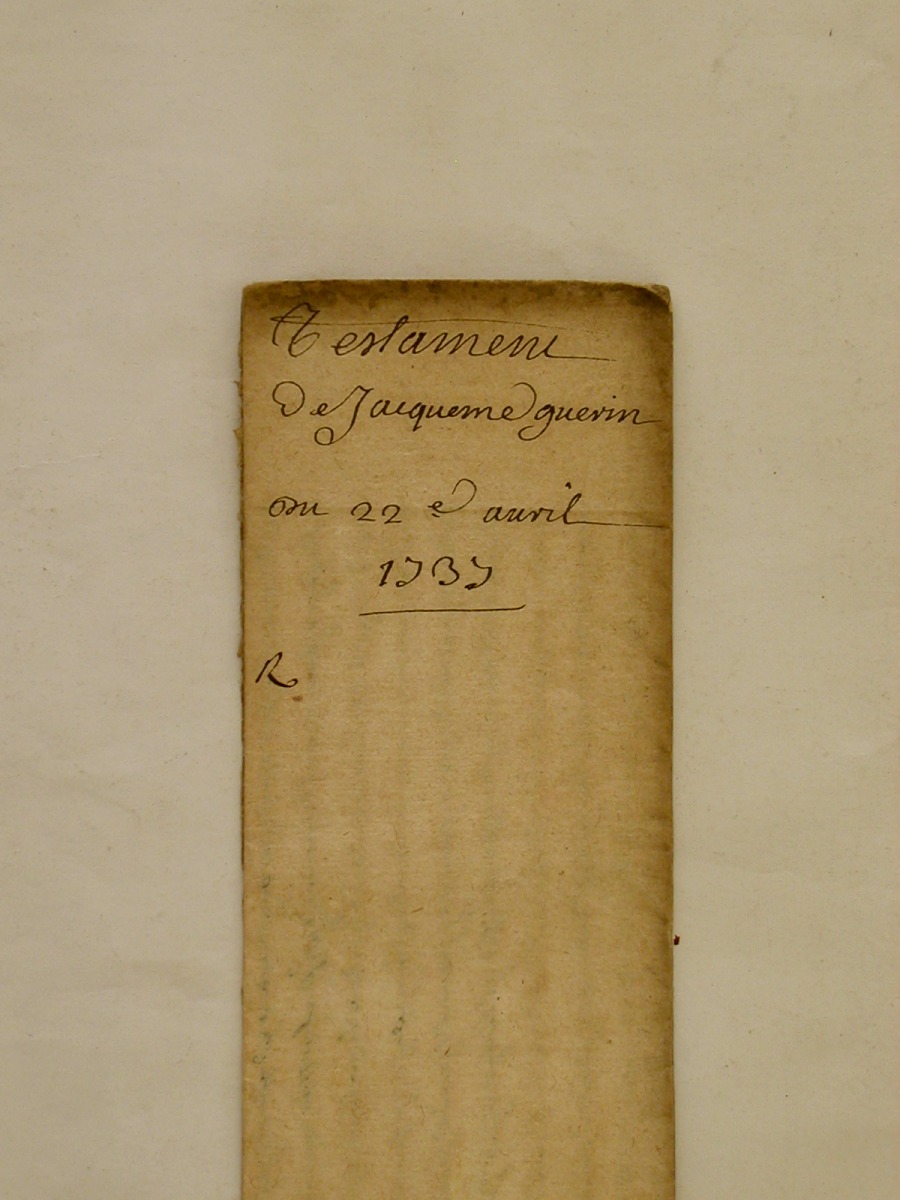 Testament
De Jacqueme guerin
Du 22e avril
1737
R